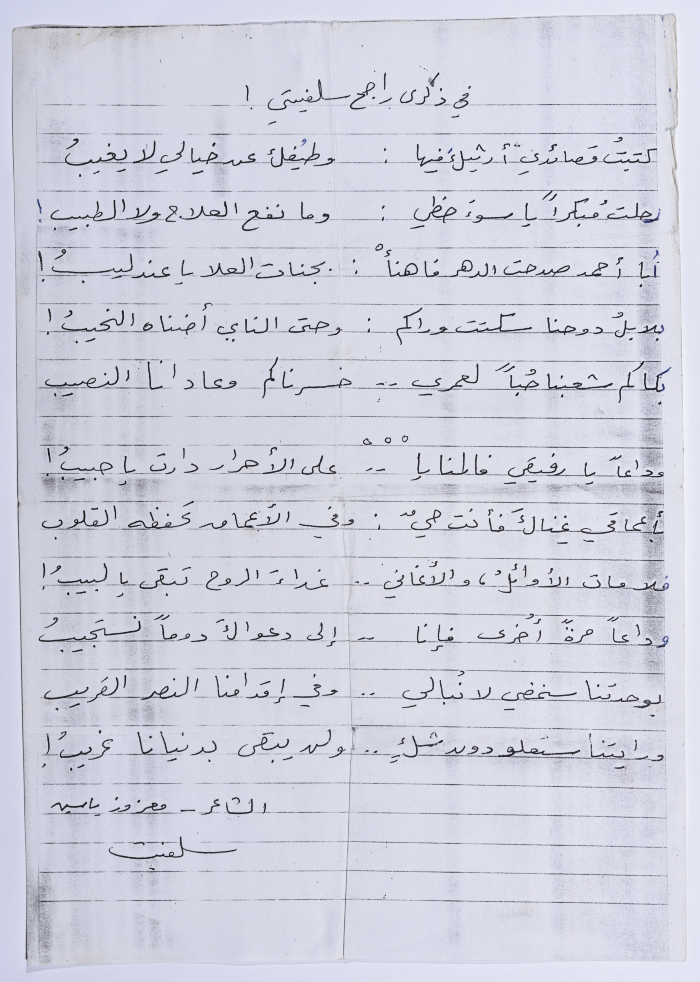 في ذكرى راجح سلفيتي !
كتبتُ قصائدي أرثيك فيها : وطيفك عن خيالي لا يغيبُ
رحلت مُبكراً يا سوءَ حظي : وما نفع العلاج ولا الطبيب !
أبا أحمد صدحت الدهر فاهنأْ : بجنات العلا يا عندليبُ !
بلابلُ دوحنا سكتت وراكم : وحتى الناي أضناه النحيبُ !
بكاكم شعبنا حُباً لعمري .. خسرناكم وعادانا النصيب
وداعاً يا رفيقي فالمنايا .. على الأحرار دارت يا حبيبُ !
بأعماقي غِناكَ فأنت حيٌ : وفي الأعماق تحفظه القلوب
فلا مات الأوائلُ، والأغاني .. غذاءَ الروح تبقى يا لبيبُ !
وداعاً مرةً أُخرى فإنا .. إلى دعواكَ دوماً نستجيبُ
بوحدتنا سنمضي لا نُبالي .. وفي إقدامنا النصر القريب
ورايتنا ستعلو دون شكٍ .. ولن يبقى بدنيانا غريبُ !
الشاعر - معزوز ياسين
سلفيت